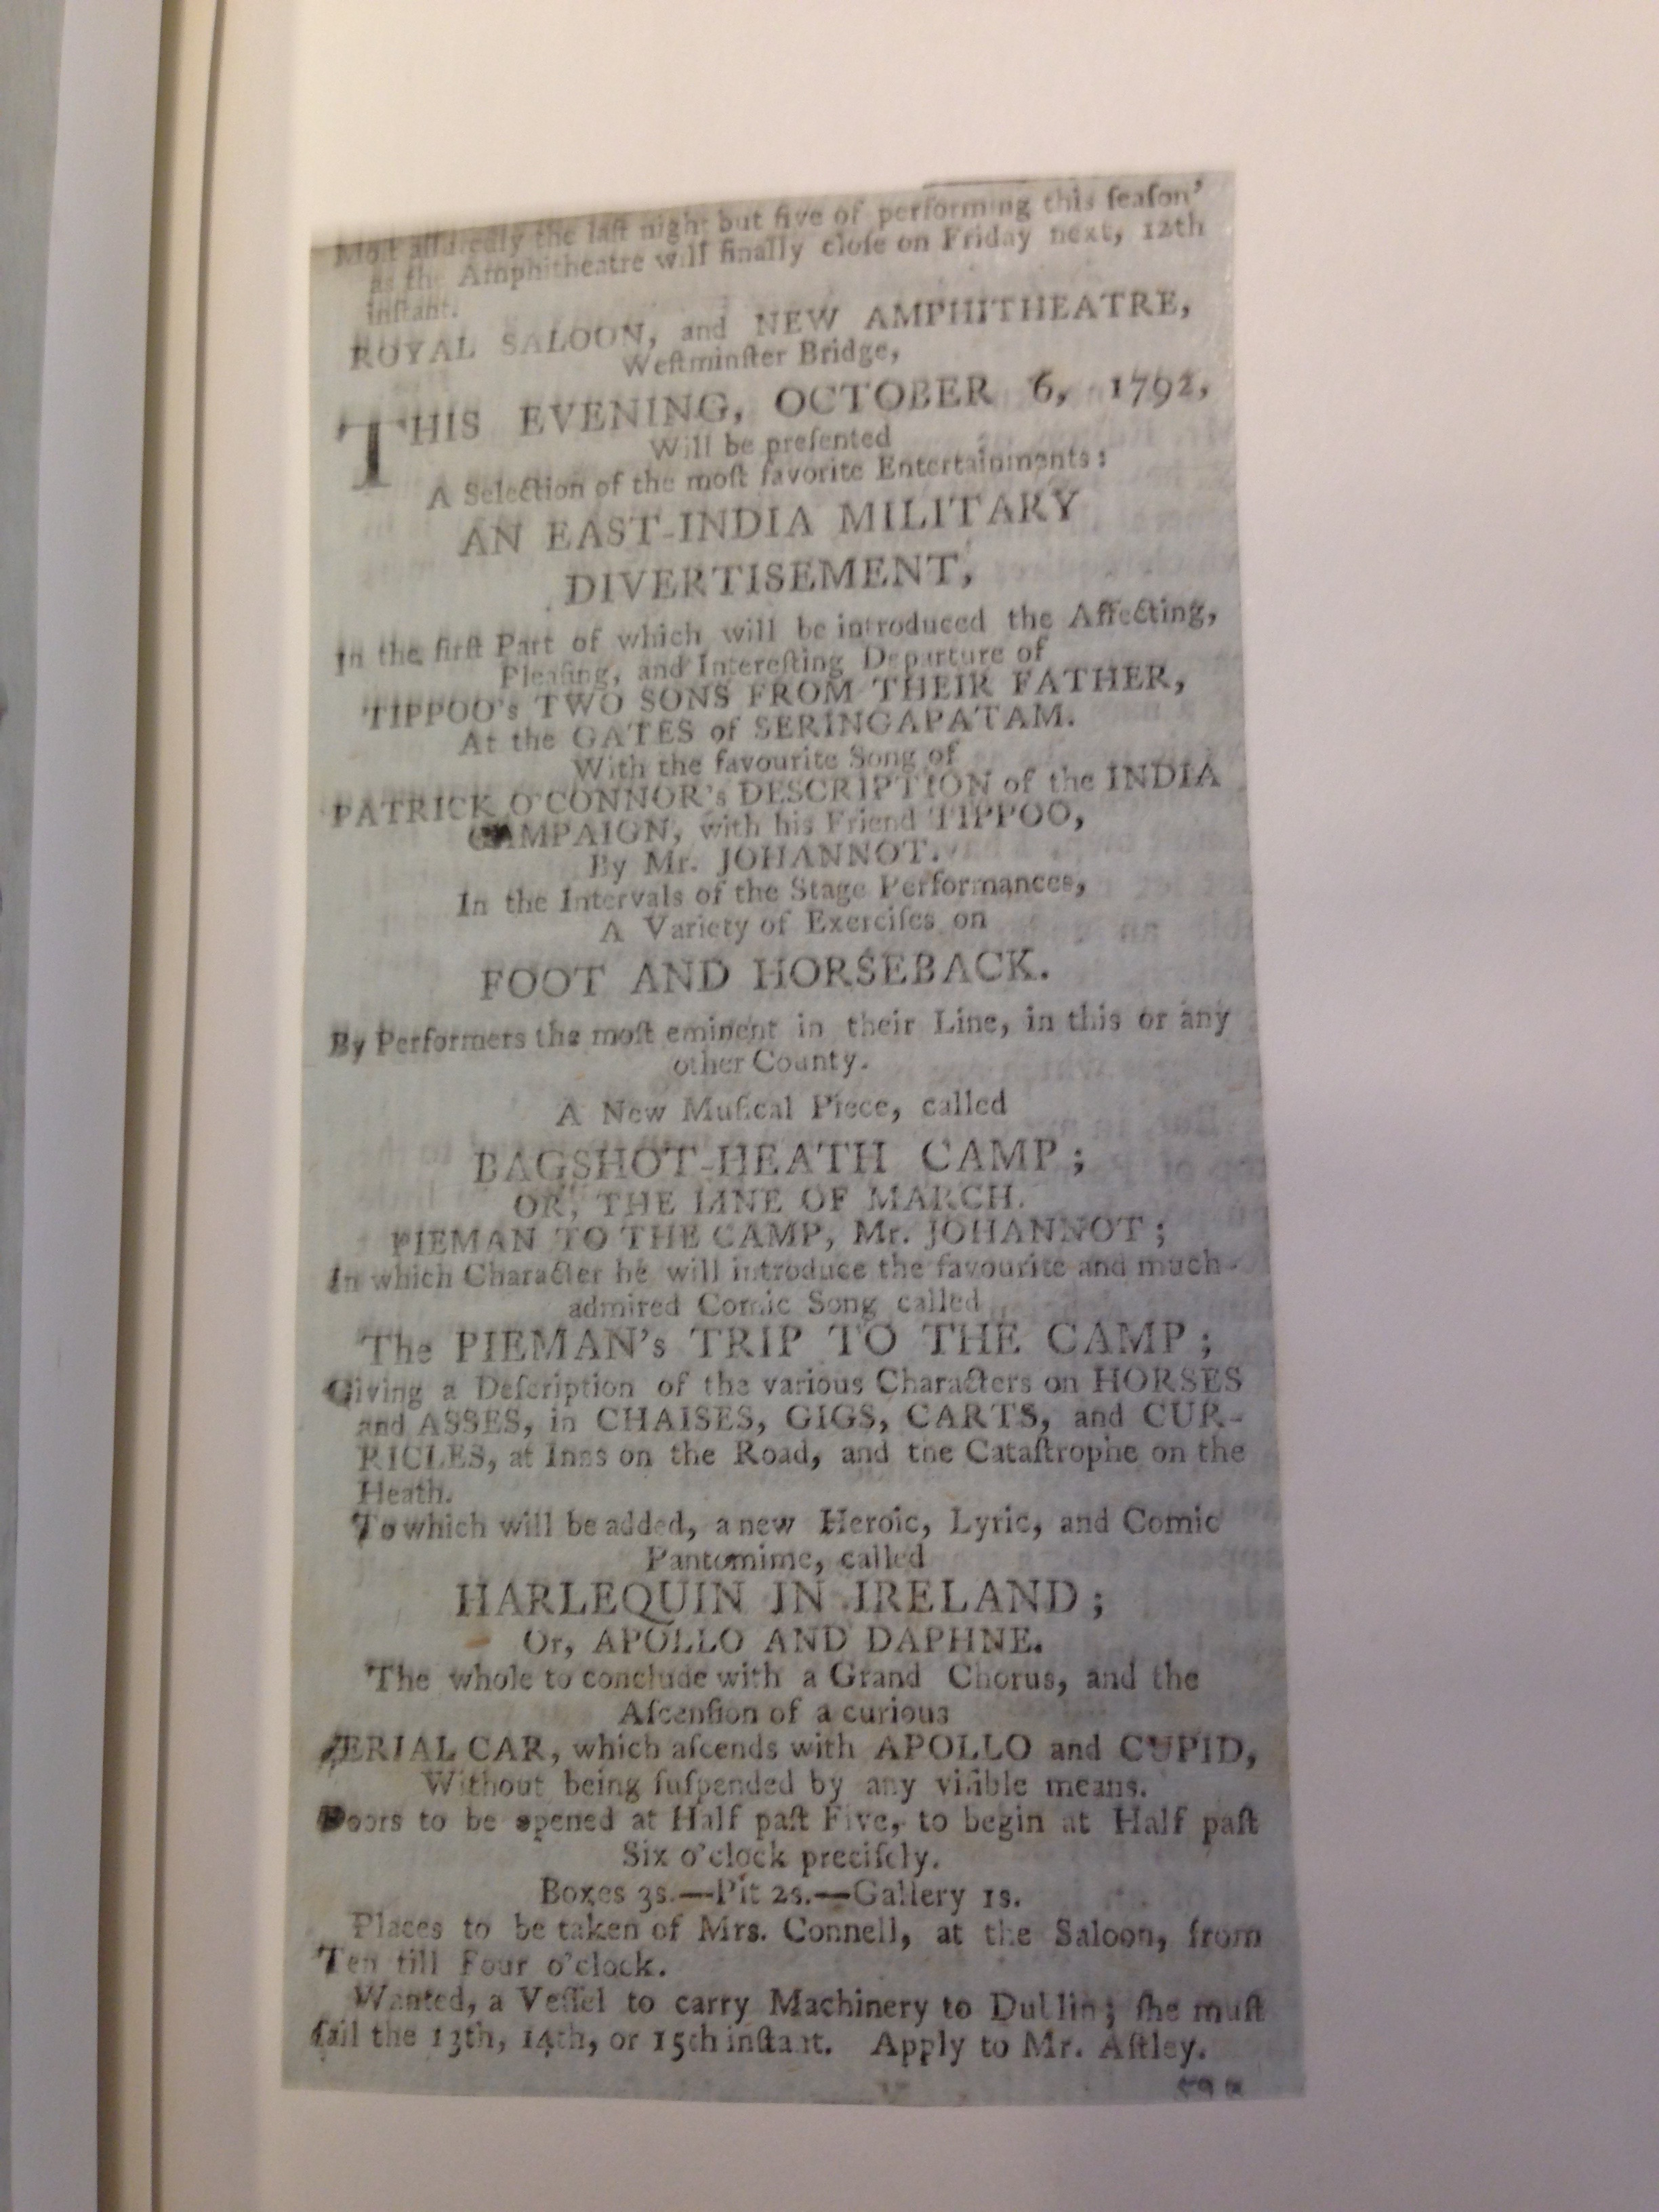 Most assuredly the laſt night but five of performing this ſeaſon'
as the Amphitheatre will finally cloſe on Friday next, 12th
inſtant.
ROYAL SALOON, and NEW AMPHITHEATRE,
Weſtminſter Bridge,
THIS EVENING, OCTOBER 6, 1792,
Will be preſented
A Selection of the moſt favorite Entertainments:
AN EAST-INDIA MILITARY
DIVERTISEMENT,
In the firſt Part of which will be introduced the Affecting,
Pleaſing, and Intereſting Departure of
TIPPOO's TWO SONS FROM THEIR FATHER,
At the GATES of SERINGAPATAM.
With the favourite Song of
PATRICK O'CONNOR's DESCRIPTION of the INDIA
CAMPAIGN, with his Friend TIPPOO,
By Mr. JOHANNOT.
In the Intervals of the Stage Performances,
A Variety of Exerciſes on
FOOT AND HORSEBACK.
By Performers the moſt eminent in their Line, in this or any
other County.
A New Muſical Piece, called
BAGSHOT-HEATH CAMP;
OR, THE LINE OF MARCH.
PIEMAN TO THE CAMP, Mr. JOHANNOT;
In which Character he will introduce the favourite and much-
admired Comic Song called
The PIEMAN's TRIP TO THE CAMP;
Giving a Deſcription of the various Characters on HORSES
and ASSES, in CHAISES, GIGS, CARTS, and CUR-
RICLES, at Inns on the Road, and the Cataſtrophe on the
Heath.
To which will be added, a new Heroic, Lyric, and Comic
Pantomime, called
HARLEQUIN IN IRELAND;
Or, APOLLO AND DAPHNE.
The whole to conclude with a Grand Chorus, and the
Aſcenſion of a curious
ÆRIAL CAR, which aſcends with APOLLO and CUPID,
Without being ſuſpended by any viſible means.
Doors to be opened at Half paſt Five, to begin at Half paſt
Six o'clock preciſely.
Boxes 3s.—Pit 2s.—Gallery 1s.
Places to be taken of Mrs. Connell, at the Saloon, from
Ten till Four o'clock.
Wanted, a Veſſel to carry Machinery to Dublin; ſhe muſt
ſail the 13th, 14th, or 15th inſtant. Apply to Mr. Aſtley.